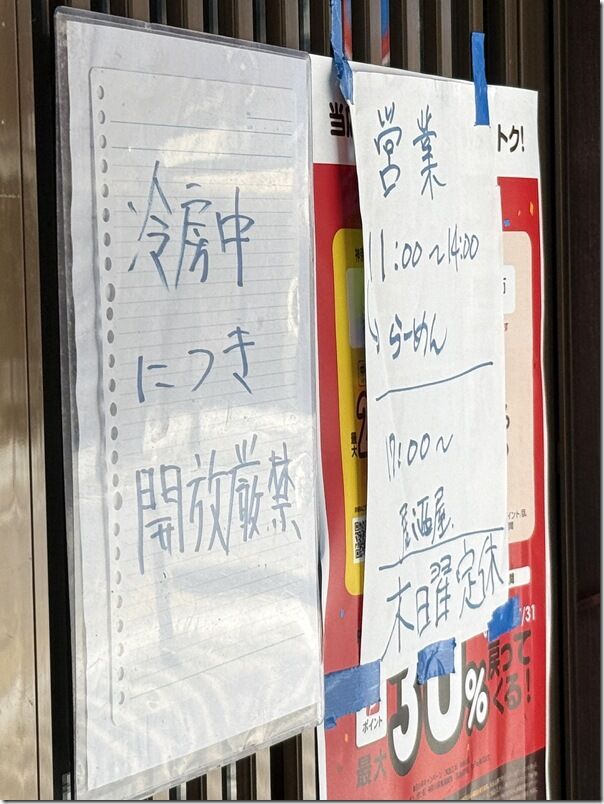 冷房中
につき
開放厳禁
営業
11:00～14:00
らーめん
17:00～
居酒屋
木曜定休
トク!
/31
ポイント
最大
30%
戻って
くる!